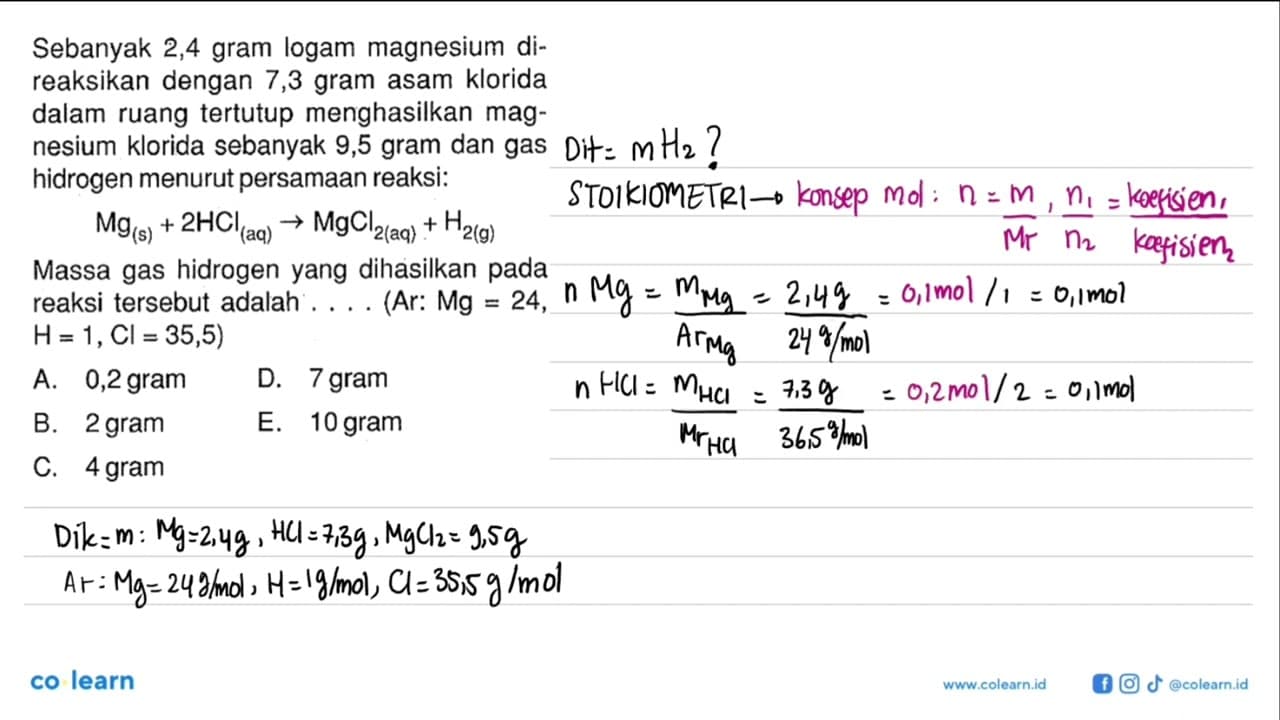 Sebanyak 2,4 gram logam magnesium di-
reaksikan dengan 7,3 gram asam klorida
dalam ruang tertutup menghasilkan mag-
nesium klorida sebanyak 9,5 gram dan gas
hidrogen menurut persamaan reaksi:
Mg(s) + 2HCl(aq) → MgCl2(aq) + H2(g)
Massa gas hidrogen yang dihasilkan pada
reaksi tersebut adalah . . . . (Ar: Mg = 24,
H = 1, Cl = 35,5)
A. 0,2 gram D. 7 gram
B. 2 gram E. 10 gram
C. 4 gram
Dit = mH2?
STOIKIOMETRI → konsep mol: n = m/Mr, n1/n2 = koefisien1/koefisien2
n Mg = mMg/ArMg = 2,4g/24 g/mol = 0,1mol / 1 = 0,1mol
n HCl = mHCl/MrHCl = 7,3 g/36,5 g/mol = 0,2mol / 2 = 0,1mol
Dik = m: Mg = 2,4g, HCl = 7,3g, MgCl2 = 9,5g
Ar: Mg = 24 g/mol, H = 1g/mol, Cl = 35,5 g/mol
co learn
www.colearn.id
@colearn.id